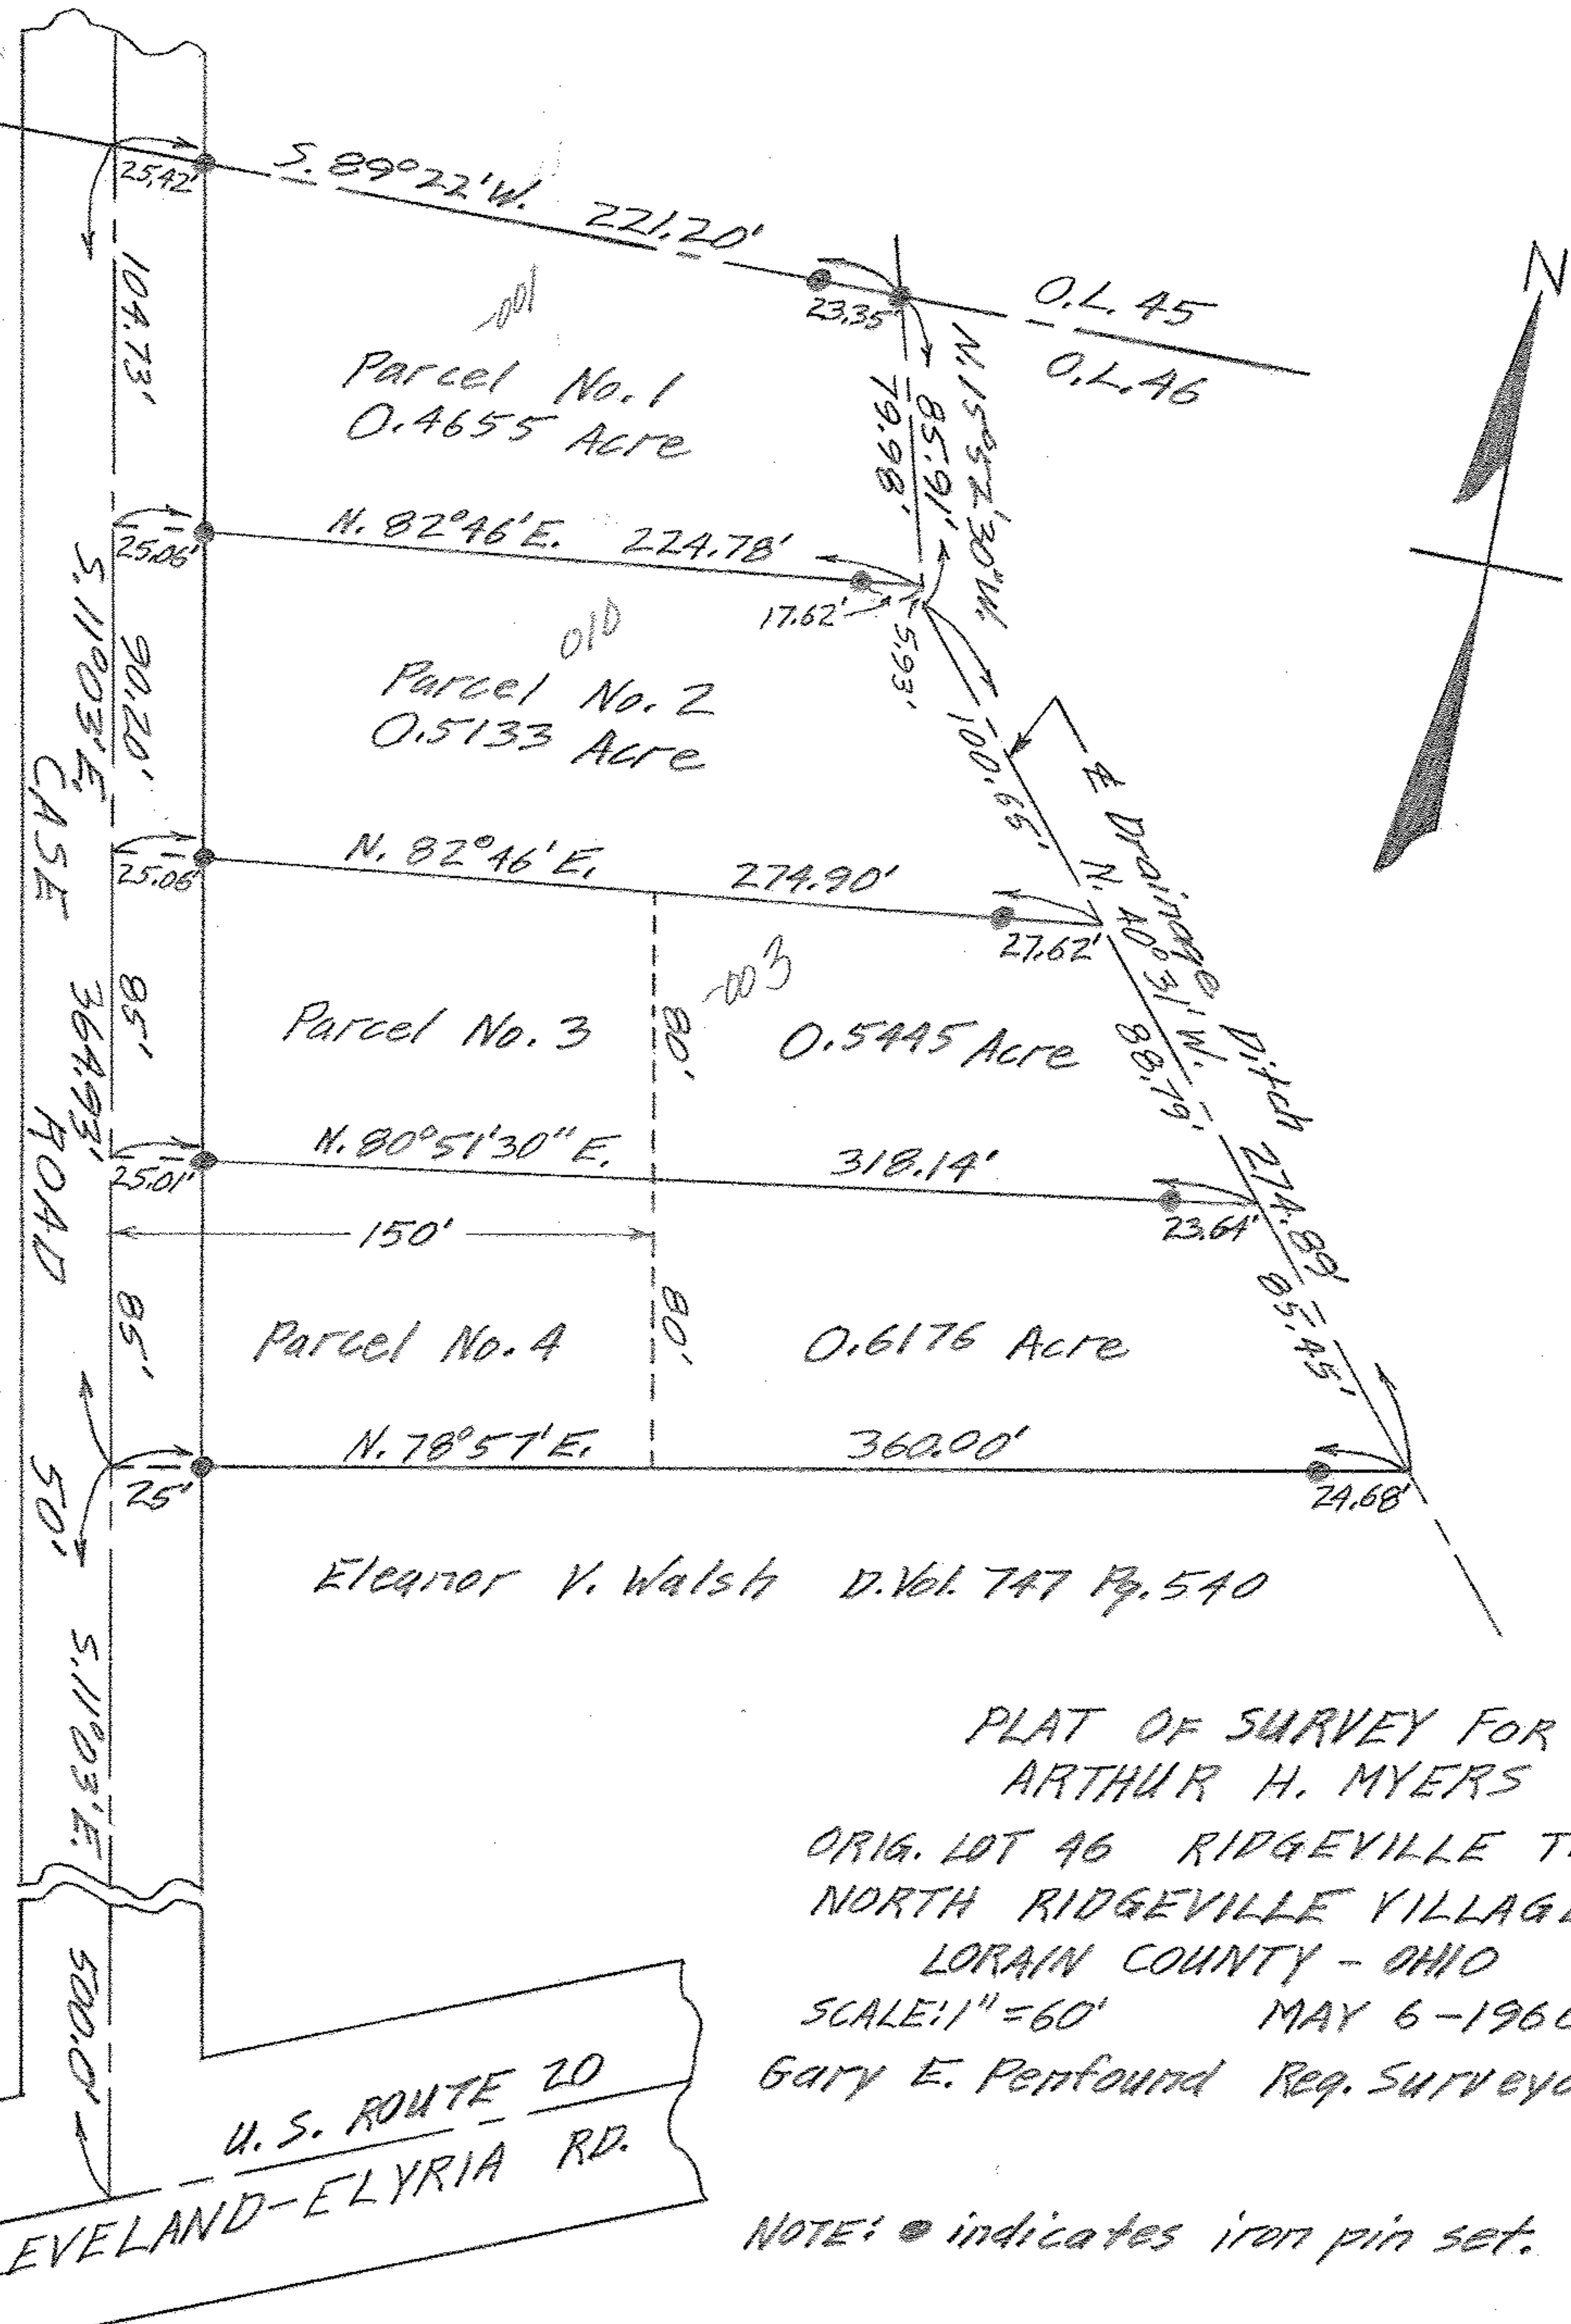 25.42'
S. 89°22'W. 221.20'
23.35'
O.L. 45
O.L. 46
N
104.73'
-001
Parcel No. 1
0.4655 Acre
79.98'
85.91'
N. 15°52'30"W.
25.06'
N. 82°46'E. 224.78'
17.62'
5.93'
S. 11°03'E. 364.93'
90.20'
010
Parcel No. 2
0.5133 Acre
100.66'
℄ Drainage Ditch
N. 40°31'W. 274.89'
CASE ROAD 50'
25.06'
N. 82°46'E. 274.90'
27.62'
85'
Parcel No. 3
80'
-003
0.5445 Acre
88.79'
25.01'
N. 80°51'30"E. 318.14'
23.64'
150'
85'
Parcel No. 4
80'
0.6176 Acre
85.45'
25'
N. 78°57'E. 360.00'
24.68'
Eleanor V. Walsh D.Vol. 747 Pg. 540
S. 11°03'E.
500.0'
PLAT OF SURVEY FOR
ARTHUR H. MYERS
ORIG. LOT 46 RIDGEVILLE T
NORTH RIDGEVILLE VILLAGE
LORAIN COUNTY - OHIO
SCALE: 1"=60' MAY 6-196
Gary E. Penfound Reg. Surveyo
U.S. ROUTE 20
EVELAND-ELYRIA RD.
NOTE: ● indicates iron pin set.